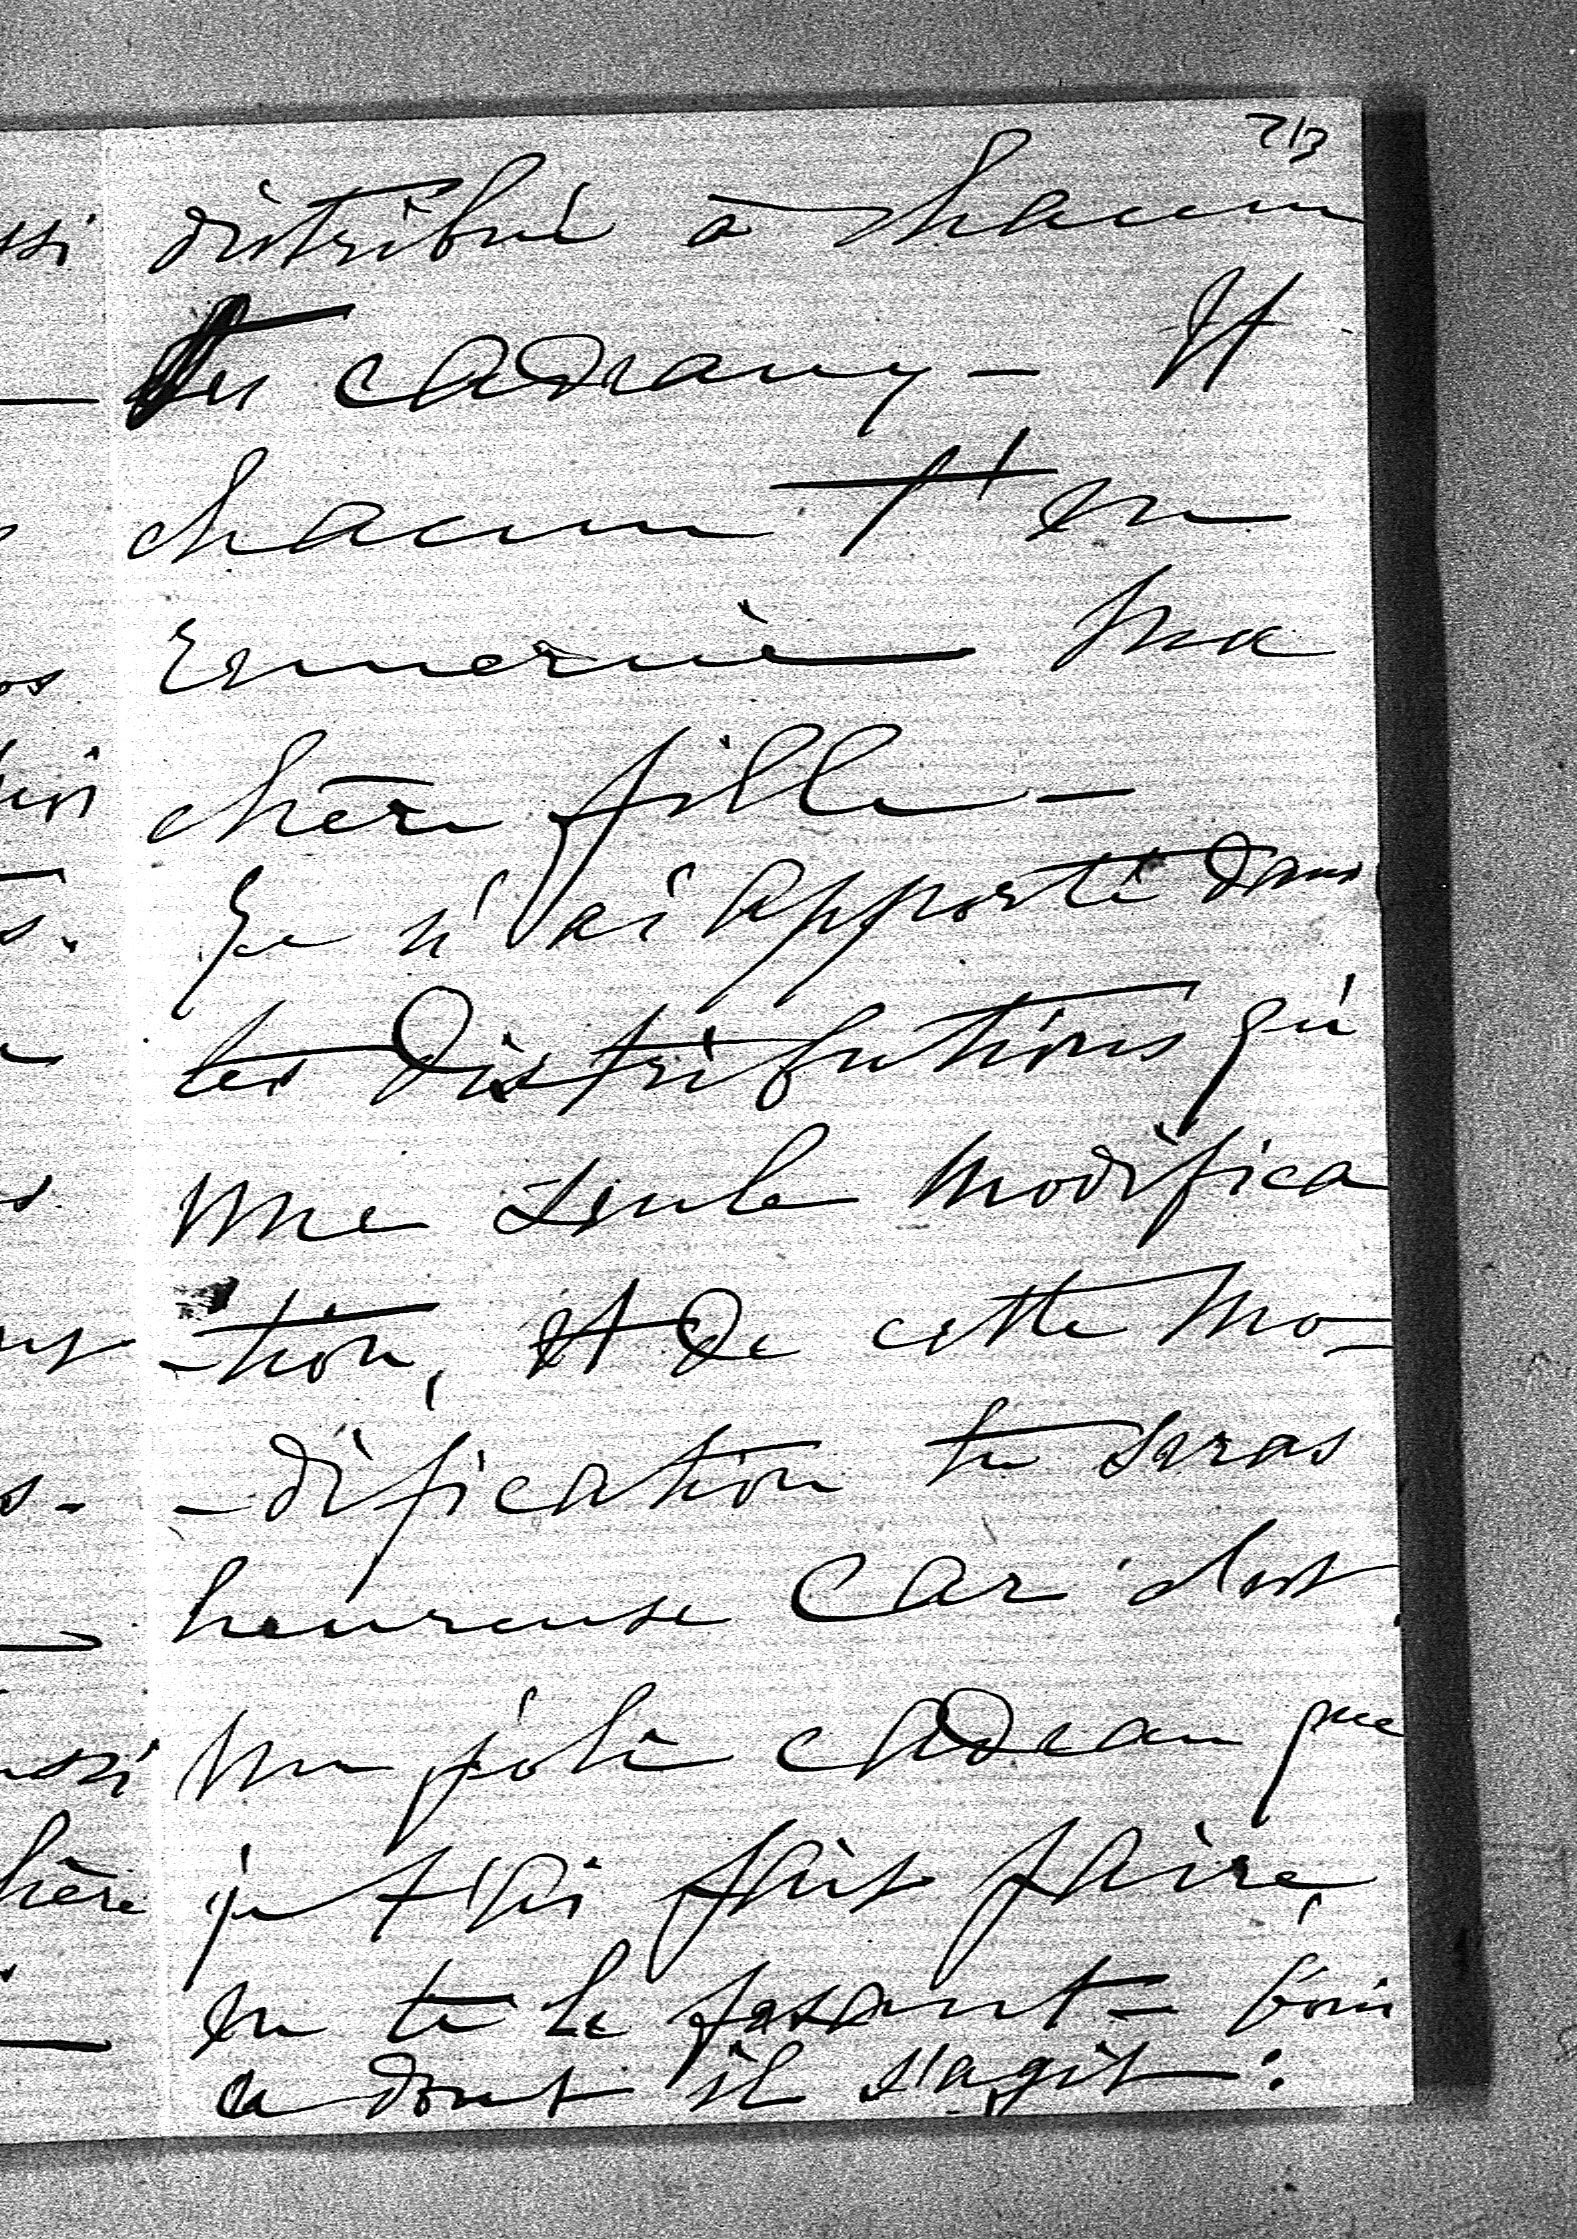 213
distribué à chacun
tes cadeaux — Et
chacun t'en
remercie ma
chère fille —
Je n'ai apporté dans
tes distributions qu'
une seule modifica
-tion, et de cette mo-
-dification tu seras
heureuse car c'est
un joli cadeau que
je t'ai fait faire,
en te le faisant — Voici
ce dont il s'agit :